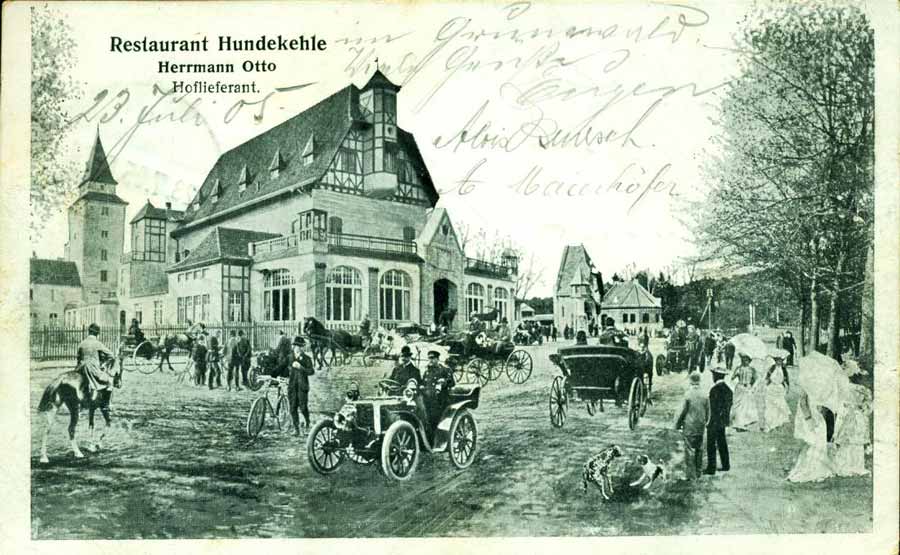 Restaurant Hundekehle im Grunewald.
Herrmann Otto
Hoflieferant.
Viele Grüße
23. Juli 05
Eugen
Alois
A Maierhöfer